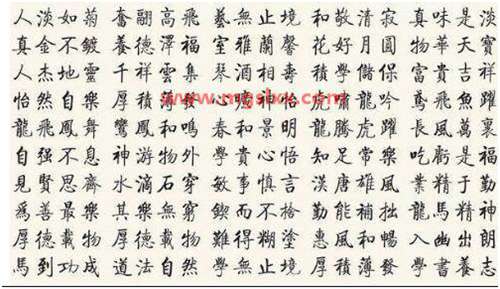 人淡如菊 奮翮高飛 藝無止境 和敬清寂 真味是淡
真金不鍍 養德澤福 室雅蘭馨 花好月圓 物華天寶
人杰地靈 千祥雲集 琴酒相壽 積學儲保 富貴吉祥
www.mgslxx.com
怡然自樂 厚積薄 心曠神怡 虎龍吟 鳶飛魚躍
龍飛鳳舞 鸞鳳和鳴 春和景明 龍騰虎躍 長風萬裏
自强不息 神游物外 學貴心悟 知足常樂 吃虧是福
見賢思齊 水滴石穿 敏事慎言 漢唐雄風 業精于勤
爲善最樂 其樂無窮 鍥而不捨 勤能補拙 龍馬精神
厚德載物 厚德載物 難得糊塗 惠風和暢 入幽出朗
馬到功成 道法自然 學無止境 厚積薄發 學書養志